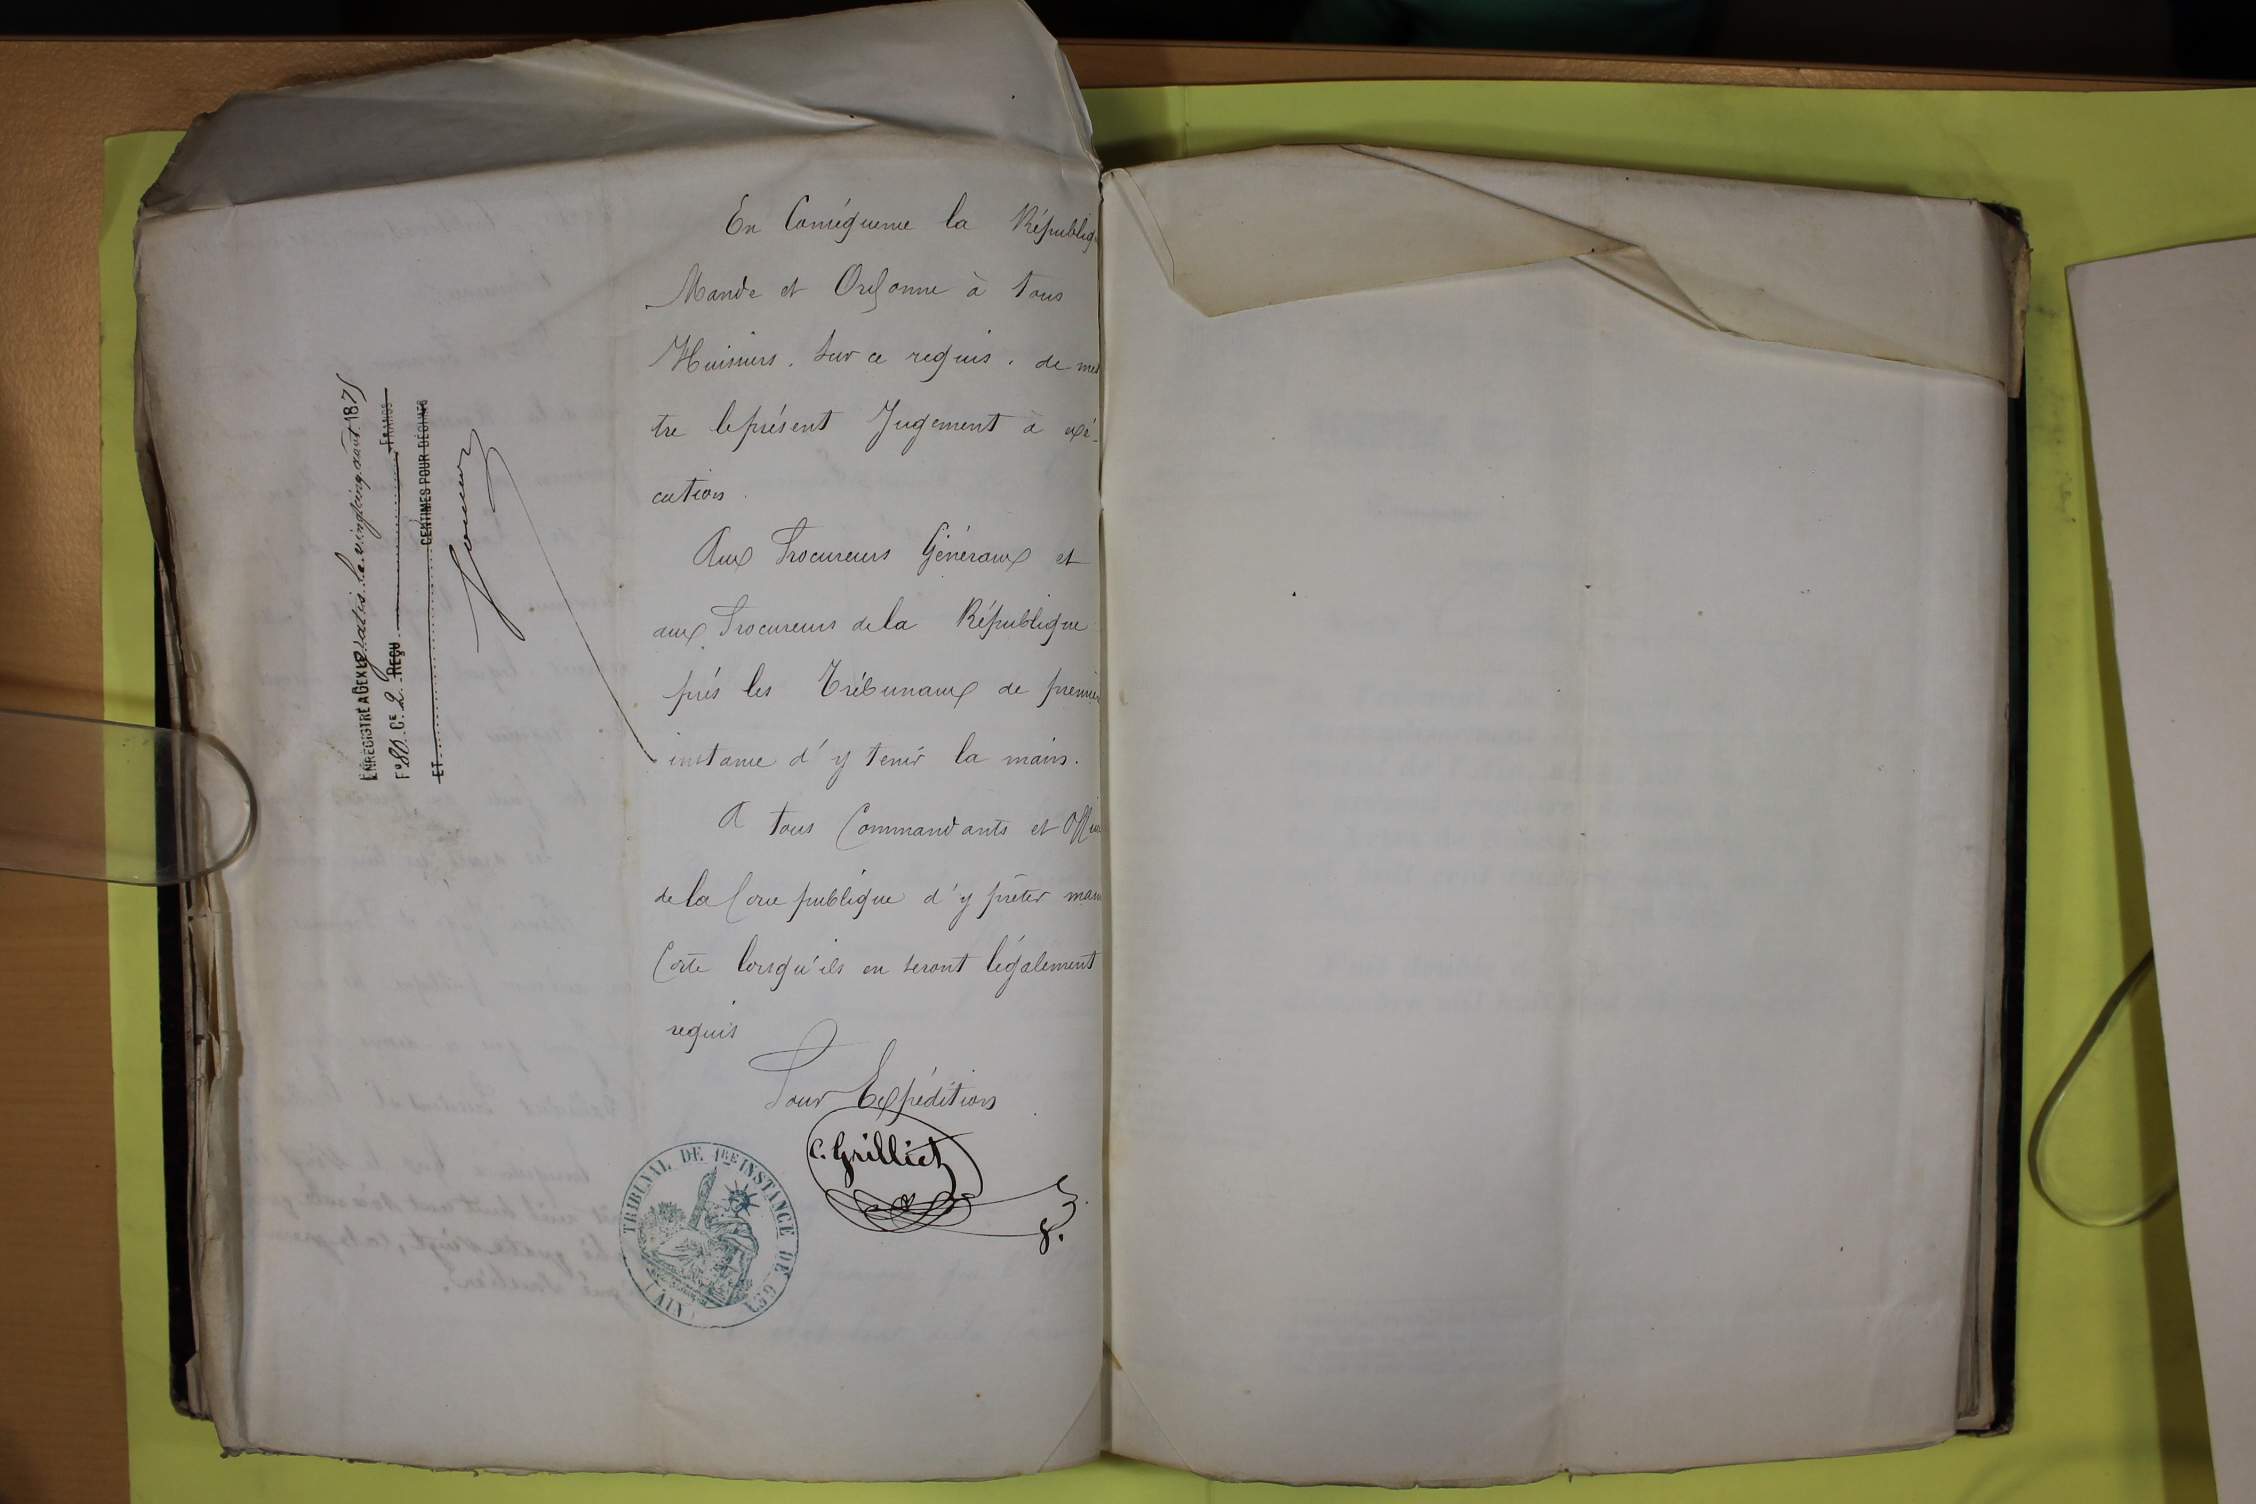 En Conséquence la Républiq
Mande et Ordonne à tous
Huissiers. Sur ce requis. de met
tre le présent Jugement à exé-
cution.
Aux Procureurs Généraux et
aux Procureurs de la République
près les Tribunaux de premiè
instance d'y tenir la main.
A tous Commandants et Offici
de la force publique d'y prêter main
forte lorsqu'ils en seront légalement
requis
Pour Expédition
C. Grilliet
g.
TRIBUNAL DE 1RE INSTANCE DE GEX
(AIN)
ENREGISTRÉ A GEX gratis le vingt cinq août 1875
F° 80 Ce 2 REÇU FRANCS
ET CENTIMES POUR DÉCIMES